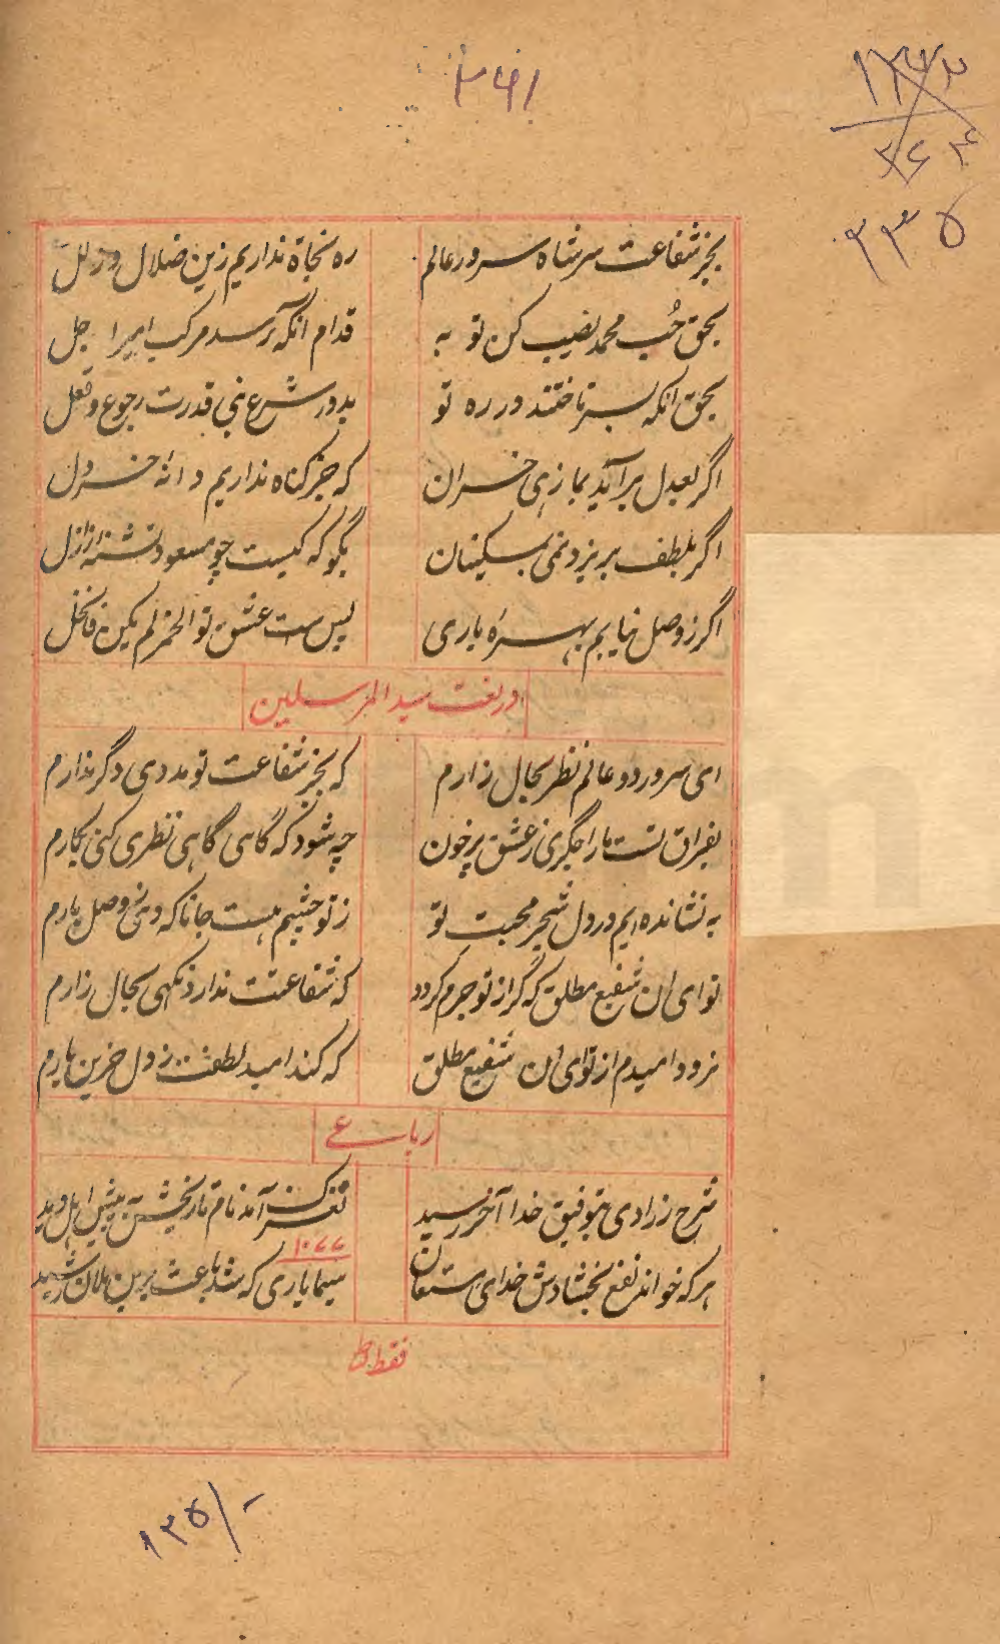 ۳۶۱
۳۳۵
بجز شفاعت سرشاه سرور عالم ره نجاة نداریم زین ضلال و زلل
بحق حُب محمد نصیب کن تو به قدام انکه رسد مرکب امیرا جل
بحق انکه بسر تاختند در ره تو بدور شرع نبی قدرت رجوع و فعل
اگر بعدل برآید بما زهی خسران که جز کناه نداریم دانهٔ خردل
اگر بلطف بریزد نمی بمسکینان بگو که کیست چو مسعود تشنه ازل
اگر ز وصل نیابیم بهرهٔ باری بس ست عشق تو الخمر لم یکن فالخل
در نعت سید المرسلین
ای سرور دو عالم نظر بحال زارم که بجز شفاعت تو مددی دگر ندارم
بفراق تست ما را جگری ز عشق پرخون چه شود که گاهی گاهی نظری کنی بکارم
به نشانده ایم در دل شجر محبت تو ز تو چشیم هست جانا که دهی وصل بارم
توای ان شفیع مطلق که گر از تو جرم کردد که شفاعتت ندارد نکهی بحال زارم
نرود امیدم از توای ان شفیع مطلق که کند امید لطفت ز دل حزین
رباعی
شرح زرادی بتوفیق خدا آخر رسید تغز آمد نام تاریخش به پیش اهل دید
۱۰۷۷
هر که خواند نفع بخشادش خدای مستعان سیما یاری که شد باعث برین
فقط
۱۳۵/-